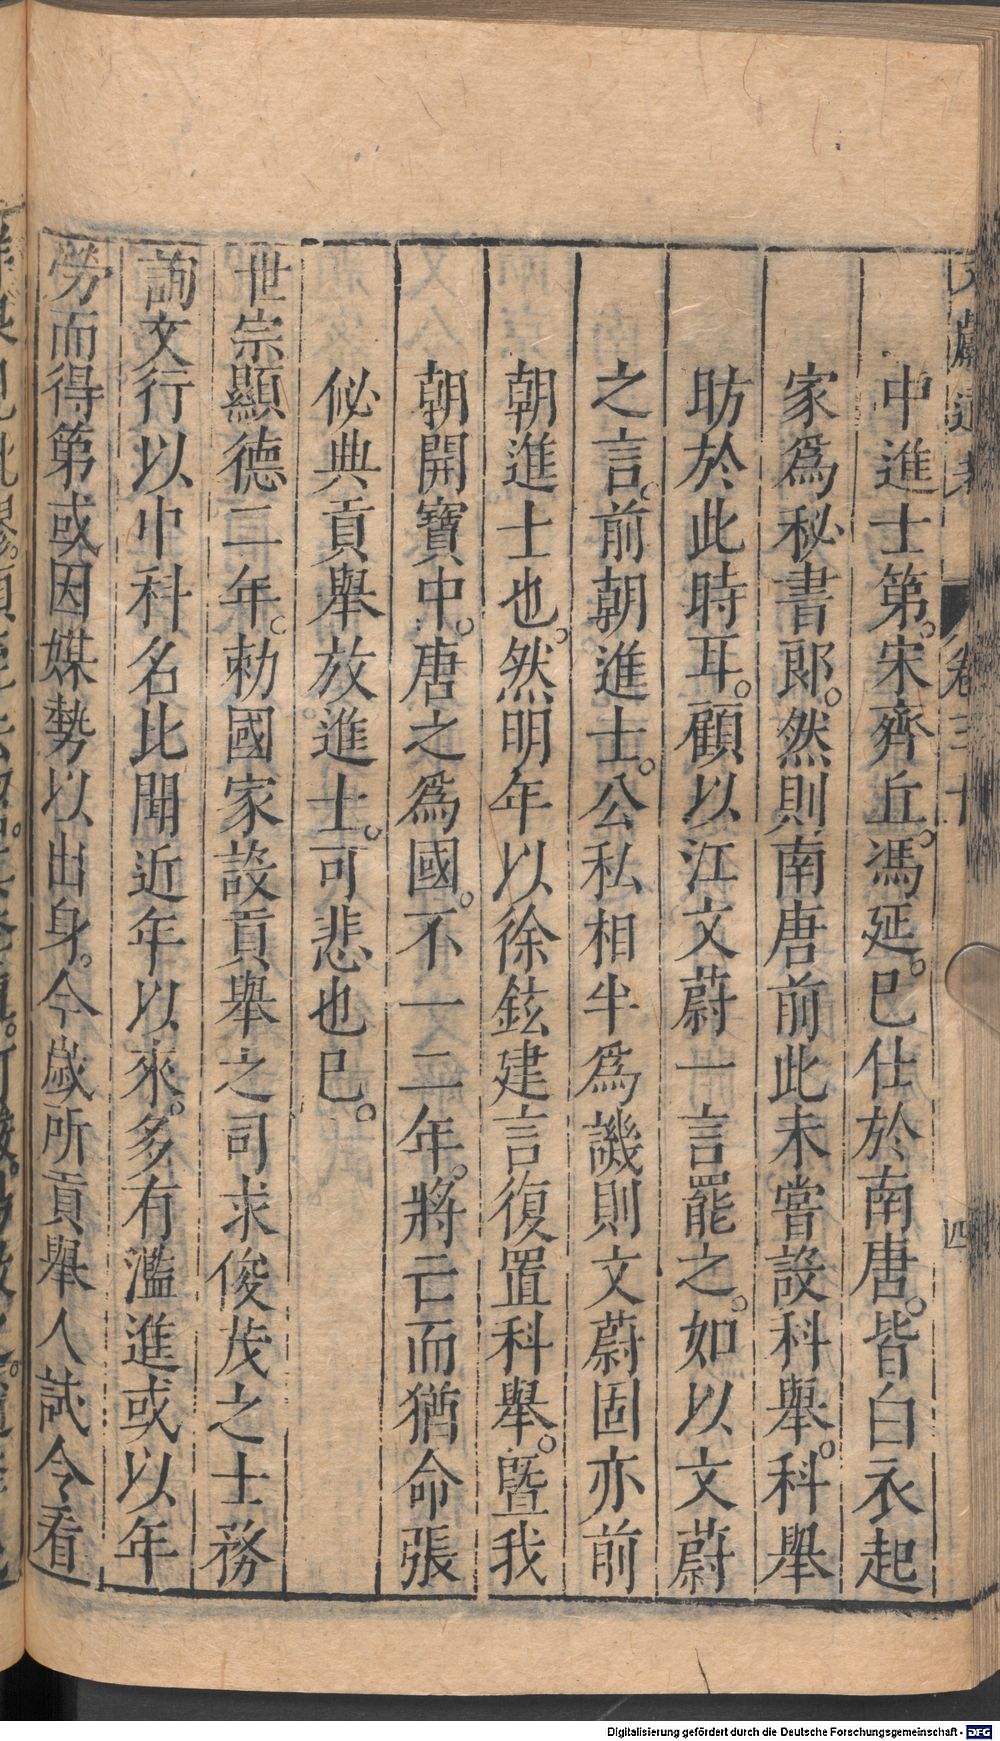 中進士第。宋齊丘。馮延。巳仕於南唐。皆白衣起
家爲秘書郎。然則南唐前此未嘗設科舉。科舉
昉於此時耳。顧以江文蔚一言罷之。如以文蔚
之言。前朝進士。公私相半爲譏則文蔚固亦前
朝進士也。然明年以徐鉉建言復置科舉。曁我
朝開寶中。唐之爲國。不一二年。將亡而猶命張
佖典貢舉放進士。可悲也已。
世宗顯德二年。勅國家設貢舉之司求俊茂之士務
詢文行以中科名比聞近年以來。多有濫進或以年
勞而得第或因媒勢以出身。今歲所貢舉人試令看
卷三十
四
Digitalisierung gefördert durch die Deutsche Forschungsgemeinschaft - DFG